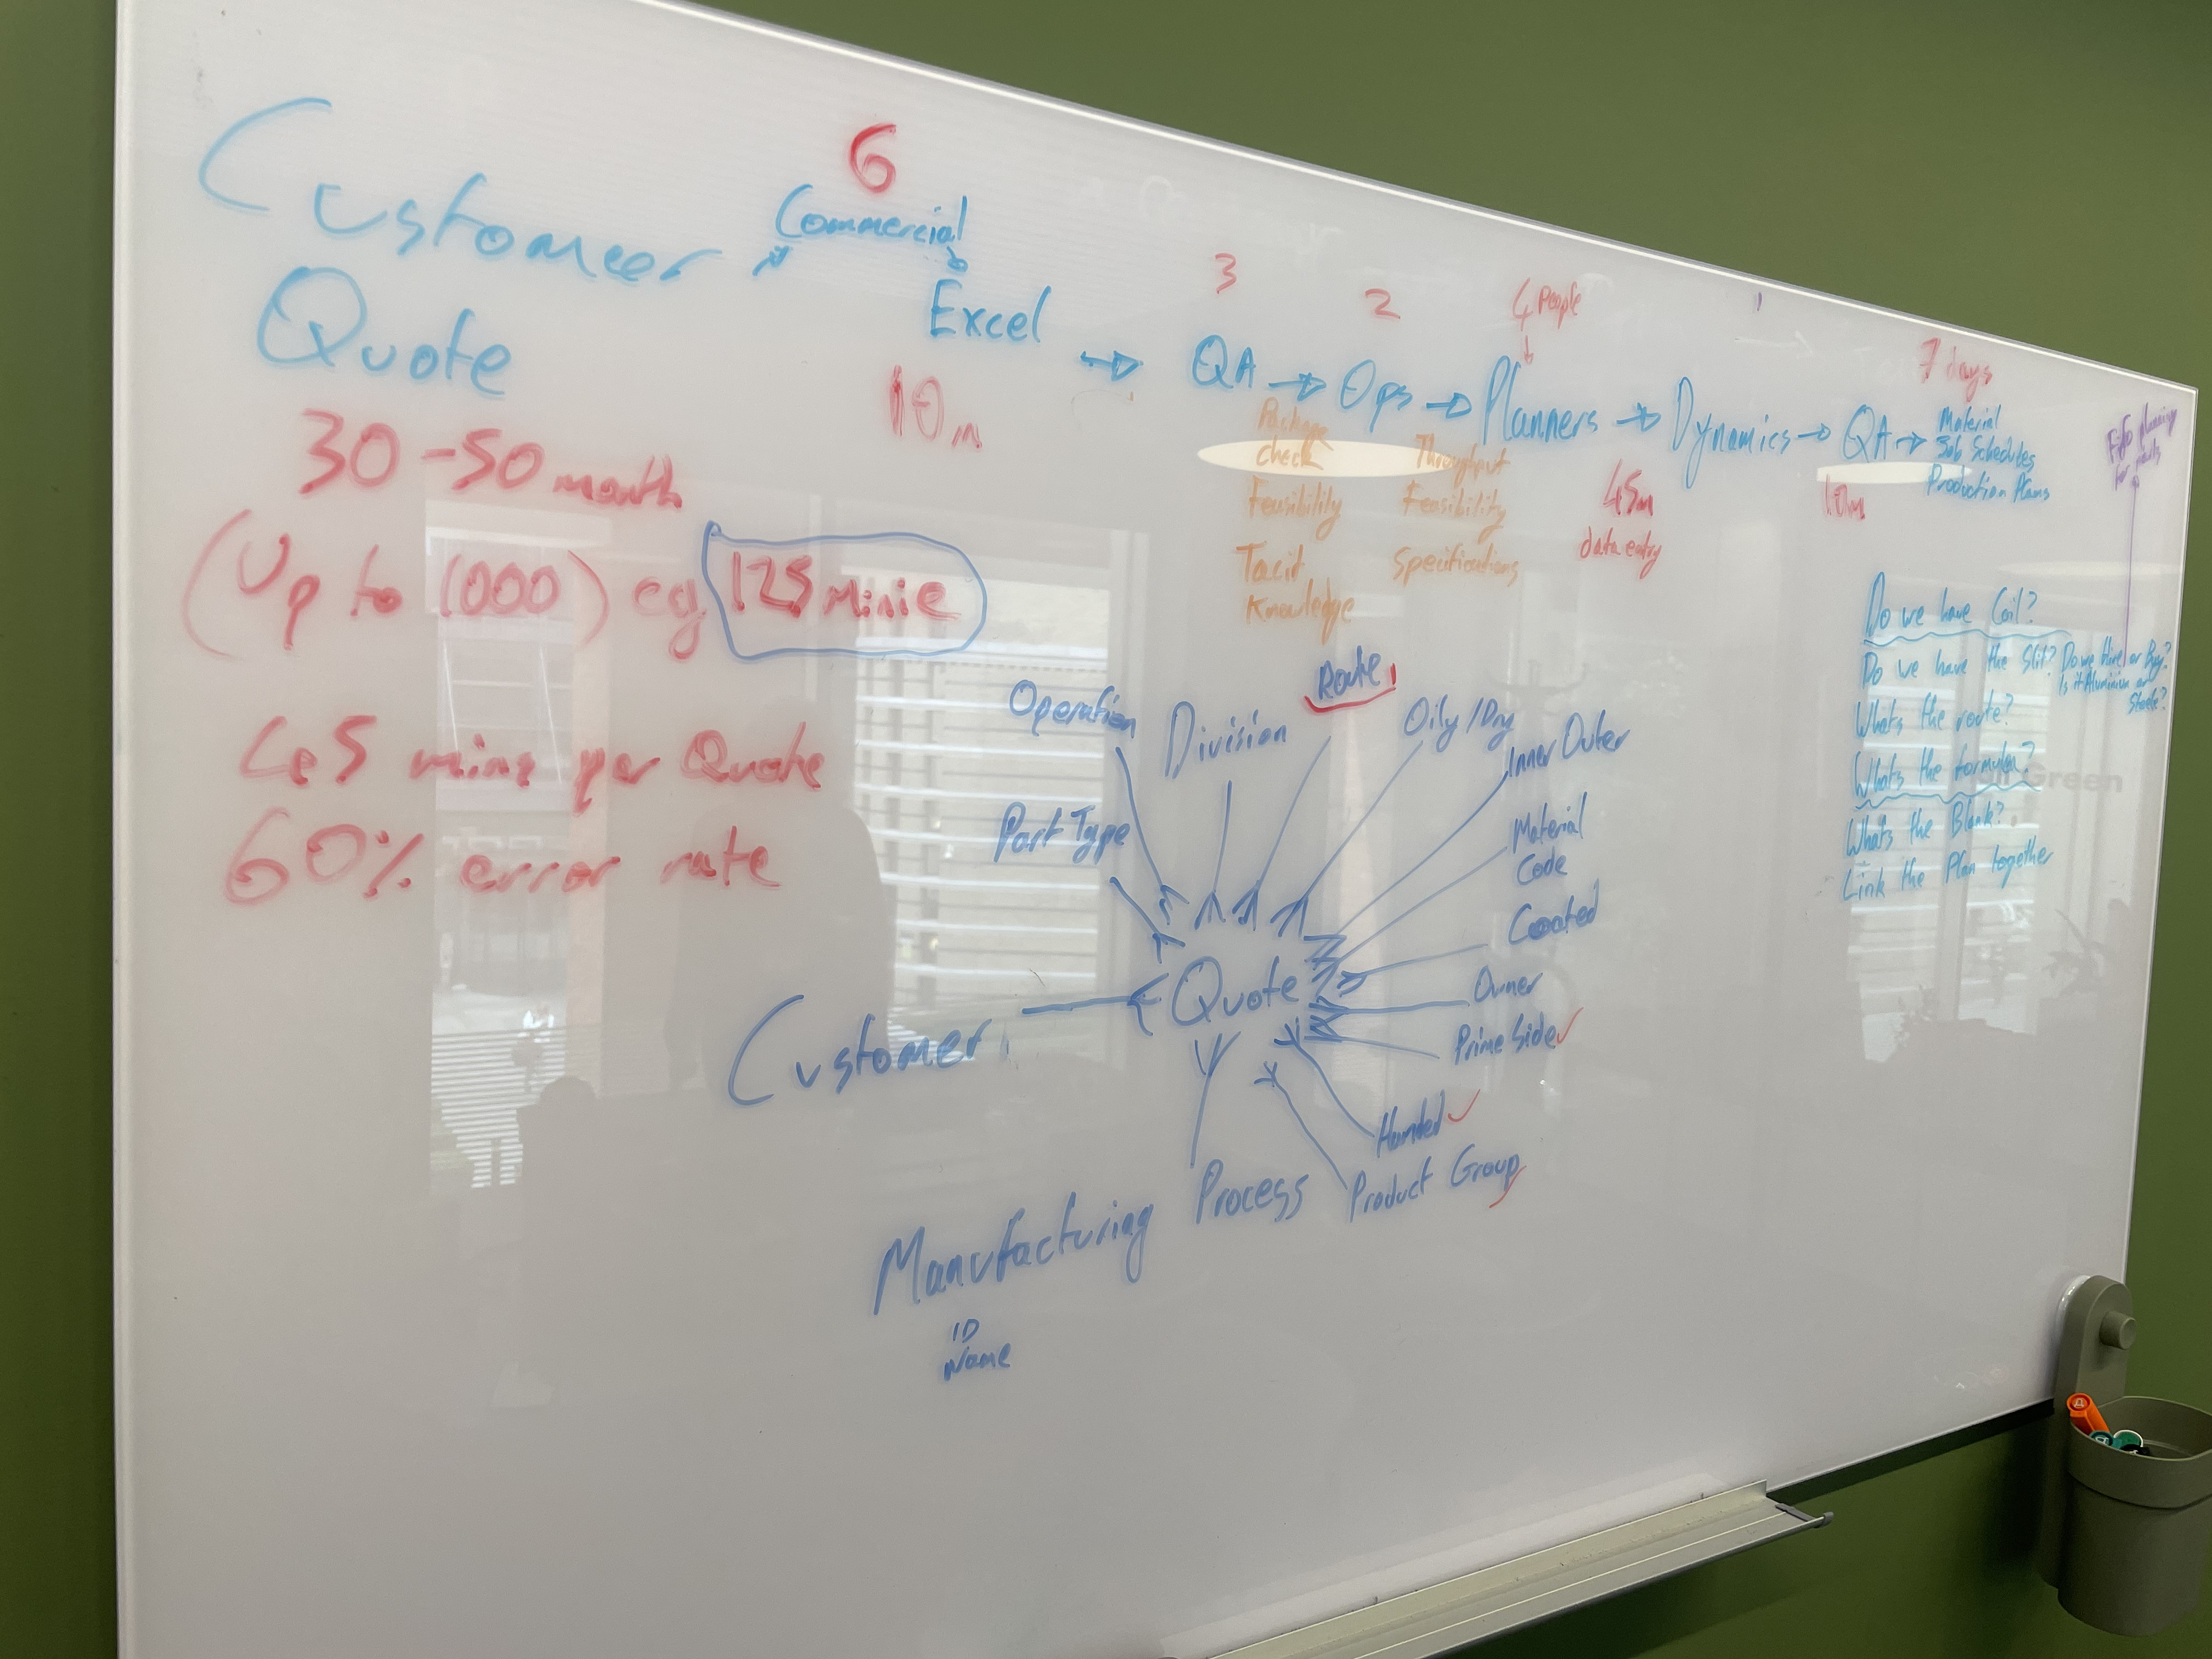 Customer
Quote
30-50 month
(Up to 1000) eg 125 Minie
45 mins per Quote
60% error rate
6
Commercial
Excel
10m
3
QA
Package
check
Feasibility
Tacit
Knowledge
2
Ops
Throughput
Feasibility
Specifications
4 People
Planners
45m
data entry
1
Dynamics
QA
10m
7 days
Material
Job Schedules
Production Plans
planning
for parts
Do we have Coil?
Do we have the Slit? Do we Hire or Buy?
Is it Aluminium or
Steele?
Whats the route?
Whats the formula?
Whats the Blank?
Link the Plan together
Operation
Division
Route
Oily/Dry
Inner Outer
Part Type
Material
Code
Coated
Quote
Owner
Prime Side
Customer
Handed
Product Group
Manufacturing Process
ID
Name
Green